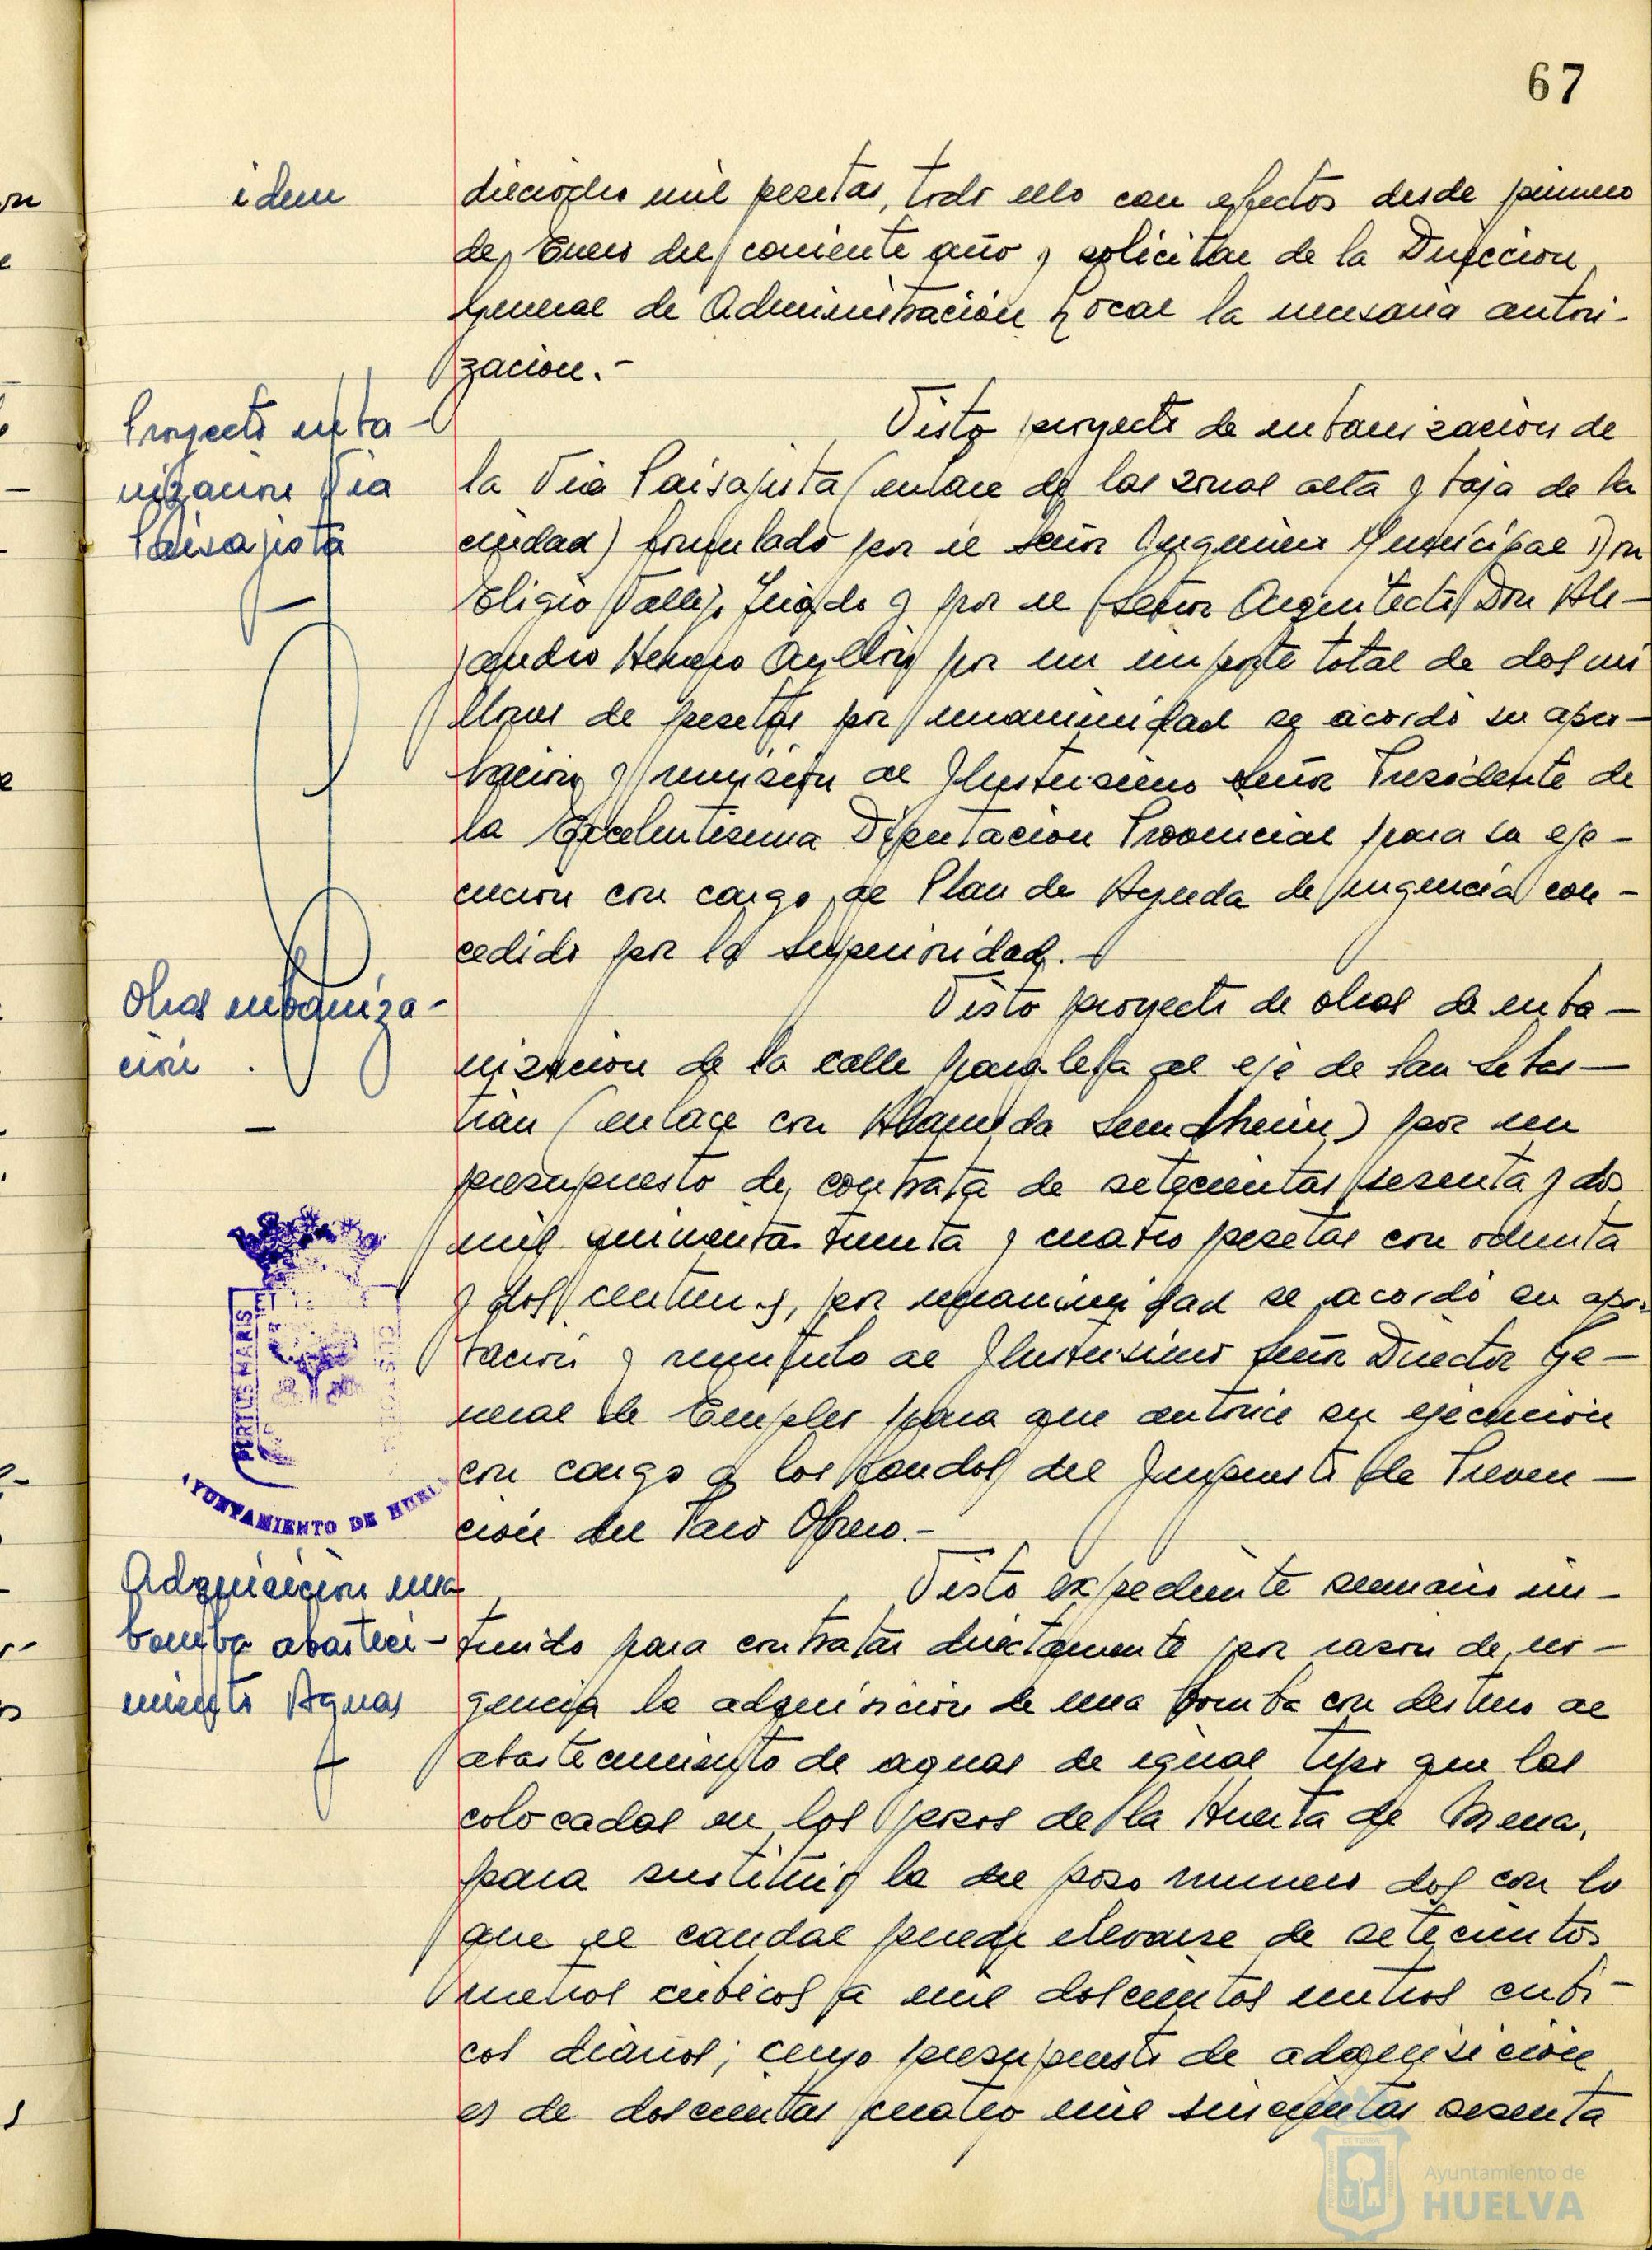 67
idem
dieciocho mil pesetas, todo ello con efectos desde primero
de Enero del corriente año y solicitar de la Direccion
General de Administración Local la necesaria autori-
zacion.-
Proyecto urba-
nización Via
Paisajista
Visto proyecto de urbanización de
la Via Paisajista (enlace de las zonas alta y baja de la
ciudad) formulado por el señor Ingeniero Municipal Don
Eligio Vallejo y por el Señor Arquitecto Don Ale-
jandro Herrero Ayllón por un importe total de dos mi
llones de pesetas por unanimidad se acordó su apro-
bación y remisión al Ilustrisimo señor Presidente de
la Excelentisima Diputacion Provincial para su eje-
cución con cargo al Plan de Ayuda de urgencia con-
cedido por la Superioridad.-
Obras urbaniza-
ción
Visto proyecto de obras de urba-
nización de la calle paralela al eje de San Sebas-
tian (enlace con Alameda Sundheim) por un
presupuesto de contrata de setecientas sesenta y dos
mil quinientas treinta y cuatro pesetas con ochenta
y dos centimos, por unanimidad se acordó su apro-
bación y remitirlo al Ilustrisimo Señor Director Ge-
neral de Empleo para que autorice su ejecución
con cargo a los fondos del Impuesto de Preven-
ción del Paro Obrero.-
PORTUS MARIS
ET
CUSTODIA
AYUNTAMIENTO DE HUELVA
Adquisición una
bomba abasteci-
miento Aguas
Visto expediente sumario ins-
truido para contratar directamente por razon de ur-
gencia la adquisición de una bomba con destino al
abastecimiento de aguas de igual tipo que las
colocadas en los pozos de la Huerta de Mena,
para sustituir la del pozo numero dos con lo
que el caudal puede elevarse de setecientos
metros cúbicos a mil doscientos metros cubi-
cos diarios; cuyo presupuesto de adquisición
es de doscientas cuatro mil seiscientas sesenta
Ayuntamiento de
HUELVA